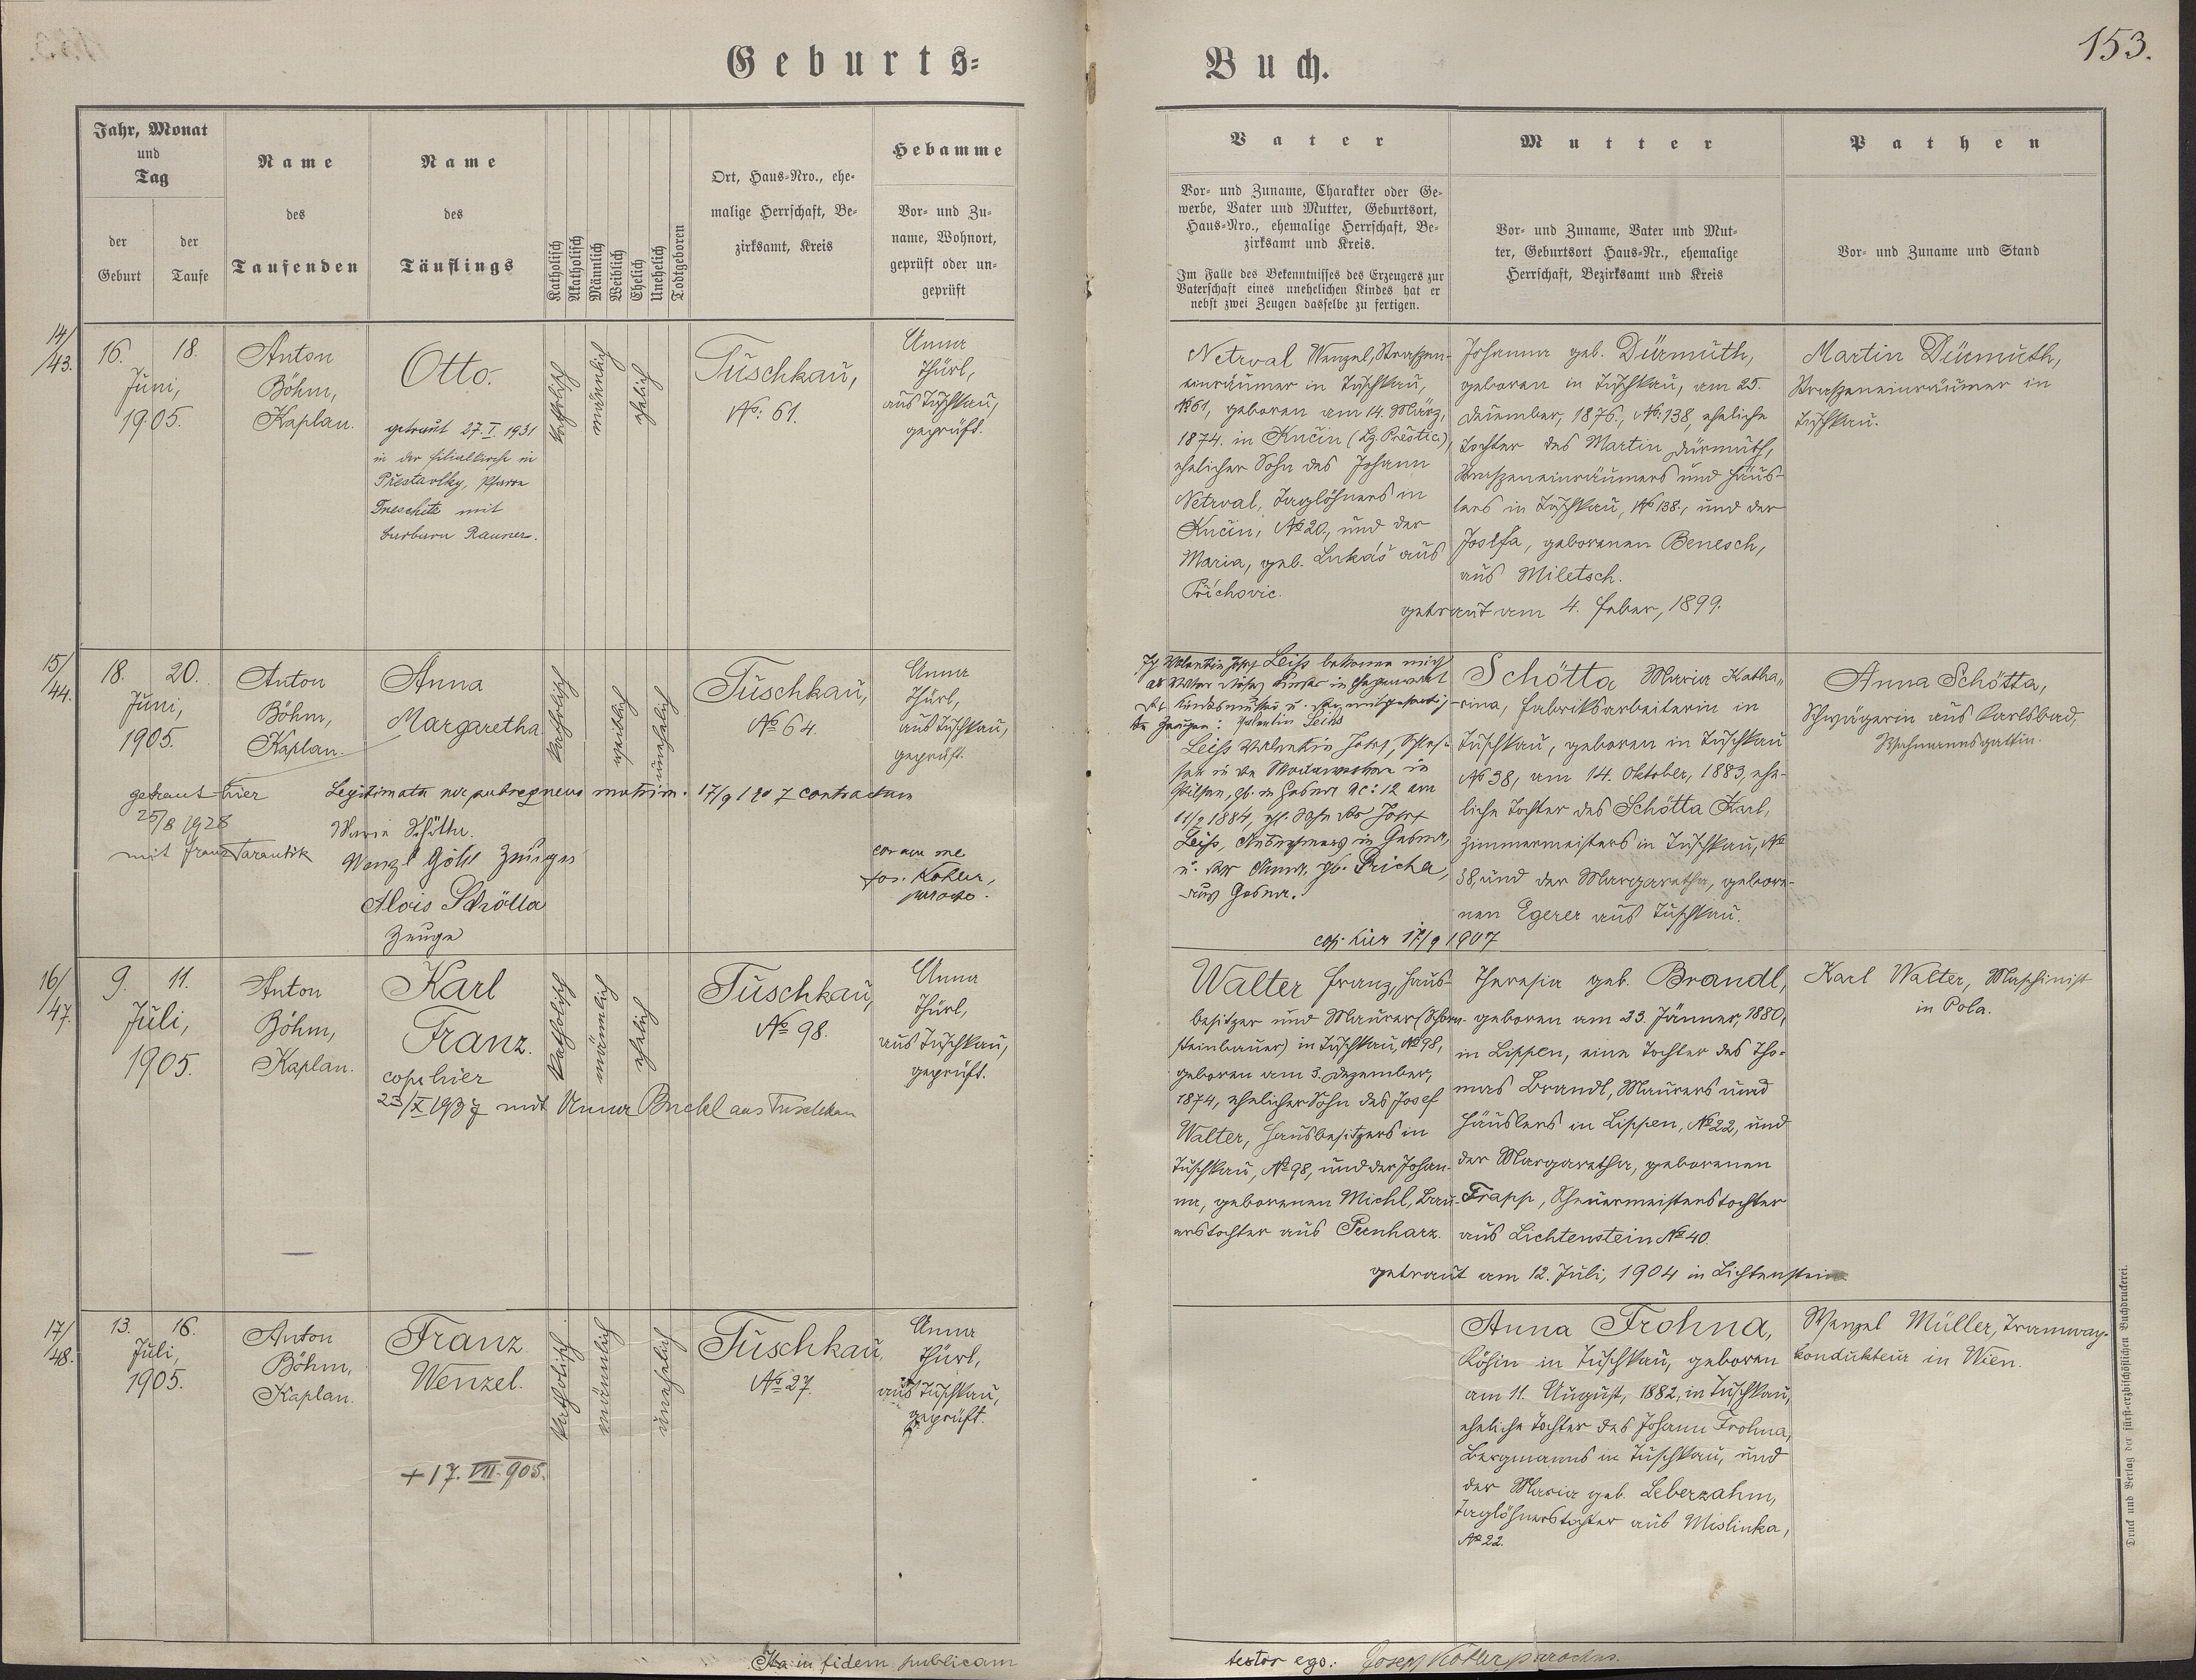 Geburts=
Buch.
153.
Jahr, Monat
und
Tag
der
Geburt
der
Taufe
Name
des
Taufenden
Name
des
Täuflings
Katholisch
Akatholisch
Männlich
Weiblich
Ehelich
Unehelich
Todtgeboren
Ort, Haus-Nro., ehe-
malige Herrschaft, Be-
zirksamt, Kreis
Hebamme
Vor- und Zu-
name, Wohnort,
geprüft oder un-
geprüft
Vater
Vor- und Zuname, Charakter oder Ge-
werbe, Vater und Mutter, Geburtsort,
Haus-Nro., ehemalige Herrschaft, Be-
zirksamt und Kreis.
Im Falle des Bekenntnisses des Erzeugers zur
Vaterschaft eines unehelichen Kindes hat er
nebst zwei Zeugen dasselbe zu fertigen.
Mutter
Vor- und Zuname, Vater und Mut-
ter, Geburtsort Haus-Nr., ehemalige
Herrschaft, Bezirksamt und Kreis
Pathen
Vor- und Zuname und Stand
14/
/43.
16. 18.
Juni,
1905.
Anton
Böhm,
Kaplan.
Otto.
getraut 27. I. 1931
in der Filialkirche in
Přestavlky, Pfarre
Treschitz mit
Barbara Rauner.
katholisch
männlich
ehelich
Tuschkau,
No: 61.
Anna
Thürl,
aus Tuschkau,
geprüft.
Netrval Wenzel, Straßen-
einräumer in Tuschkau,
No 61, geboren am 14. März,
1874. in Knčin (Bg. Přestic),
ehelicher Sohn des Johann
Netrval, Taglöhners in
Knčin, No 20., und der
Maria, geb. Lukáš aus
Příchovic.
Johanna geb. Dürmuth,
geboren in Tuschkau, am 25.
Dezember, 1876., No. 138, eheliche
Tochter des Martin Dürmuth,
Straßeneinräumers und Häus-
lers in Tuschkau, No 138., und der
Josefa, geborenen Benesch,
aus Miletsch.
getraut am 4. Feber, 1899.
Martin Dürmuth,
Straßeneinräumer in
Tuschkau.
15/
/44.
18. 20.
Juni,
1905.
Anton
Böhm,
Kaplan.
Anna
Margaretha
katholisch
weiblich
unehelich
Tuschkau,
No 64.
Anna
Thürl,
aus Tuschkau,
geprüft.
getraut hier
25/8 1928
mit Franz Tarantik
Legitimata per subsequens matrim. 17/9 1907 contractum
Maria Schötta.
Wenzl Göhl Zeuge
Alois Schötta
Zeuge
coram me
Jos. Kohler,
parocho.
Ich Valentin Josef Leiß bekenne mich
als Vater dieses Kindes in Gegenwart
der Kindesmutter u. der mitgefertig-
ten Zeugen: Valentin Leiss
Leiß Valentin Josef, Schlos-
ser in
Pilsen, gb. in Gosna No: 12 am
1884, ehl. Sohn des Josef
Leiß, in Gosna,
u. der Anna, gb. Pricha,
aus Gosna.
cop. hier 17/9 1907
Schötta Maria Katha-
rina, Fabriksarbeiterin in
Tuschkau, geboren in Tuschkau
No 38, am 14. Oktober, 1883, ehe-
liche Tochter des Schötta Karl,
Zimmermeisters in Tuschkau, No
38, und der Margaretha, gebore-
nen Egerer aus Tuschkau.
Anna Schötta,
Schwägerin aus Karlsbad,
Wachmannsgattin.
16/
/47.
9. 11.
Juli,
1905.
Anton
Böhm,
Kaplan.
Karl
Franz.
cop. hier
23/X 1937 mit Anna Buchl aus Tuschkau
katholisch
männlich
ehelich
Tuschkau,
No 98.
Anna
Thürl,
aus Tuschkau,
geprüft.
Walter Franz, Haus-
besitzer und Maurer (Schorn-
steinbauer) in Tuschkau, No 98,
geboren am 3. Dezember,
1874, ehelicher Sohn des Josef
Walter, Hausbesitzers in
Tuschkau, No 98, und der Johan-
na, geborenen Michl, Bau-
erstochter aus Pernharz.
Theresia geb. Brandl,
geboren am 23. Jänner, 1880,
in Lippen, eine Tochter des Tho-
mas Brandl, Maurers und
Häuslers in Lippen, No 22, und
der Margaretha, geborenen
Trapp, Scheuermeisterstochter
aus Lichtenstein No 40.
getraut am 12. Juli, 1904 in Lichtenstein
Karl Walter, Maschinist
in Pola.
17/
/48.
13. 16.
Juli,
1905.
Anton
Böhm,
Kaplan.
Franz
Wenzel.
+ 17. VII. 905.
katholisch
männlich
unehelich
Tuschkau,
No 27.
Anna
Thürl,
aus Tuschkau,
geprüft.
Anna Frohna,
Köchin in Tuschkau, geboren
am 11. August, 1882, in Tuschkau,
eheliche Tochter des Johann Frohna,
Bergmanns in Tuschkau, und
der Maria geb. Leberzahm,
Taglöhnerstochter aus Mislinka,
No 22.
Wenzel Müller, Tramway-
kondukteur in Wien.
Ita in fidem publicam
testor ego: Josef Kohler parochus.
Druck und Verlag der fürst-erzbischöflichen Buchdruckerei.